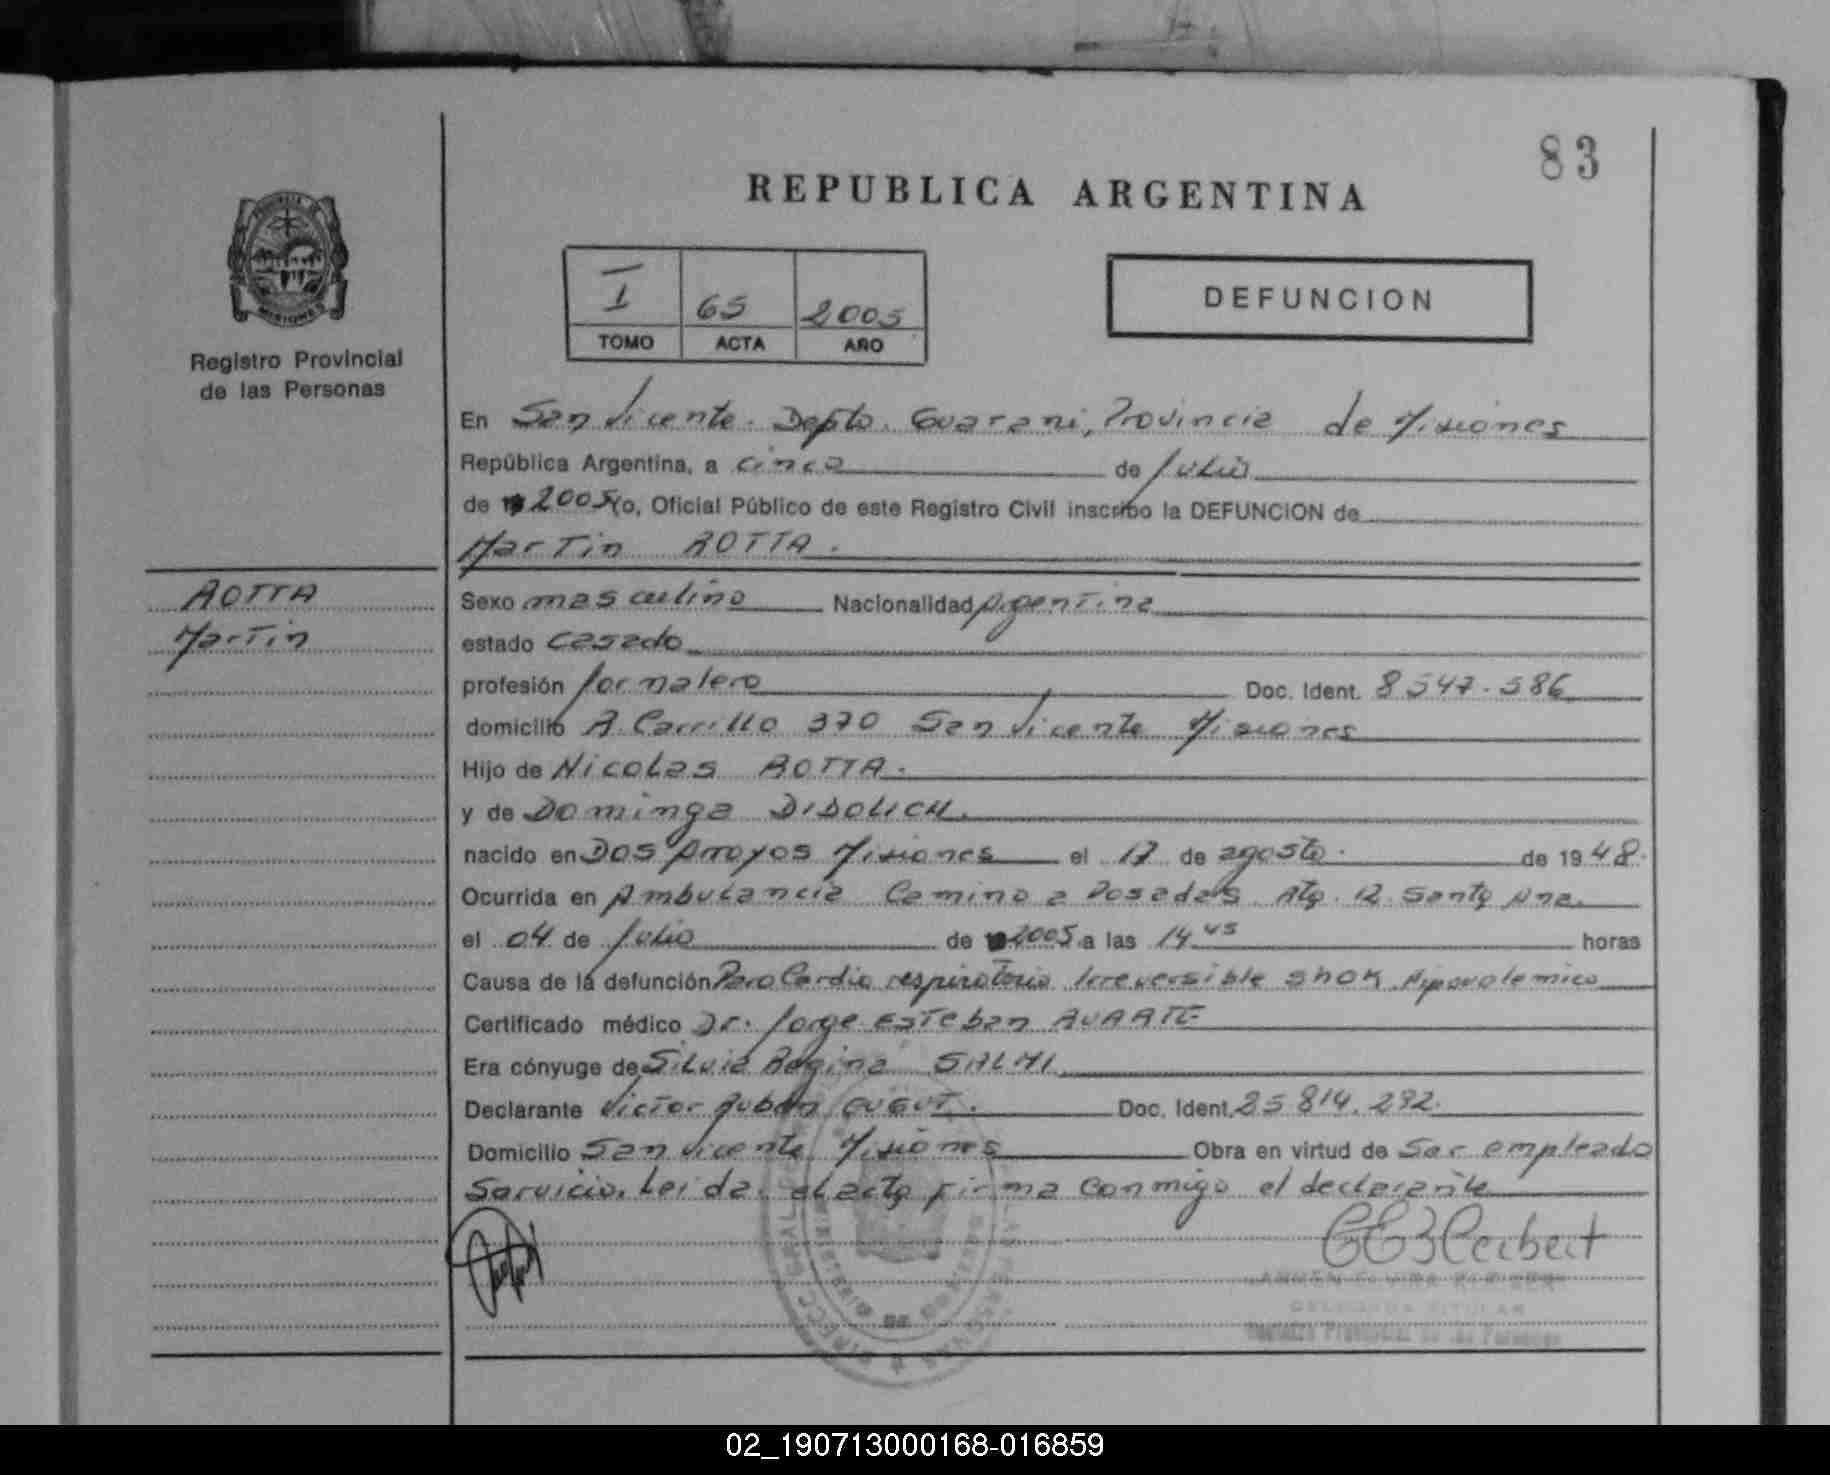 83
REPUBLICA ARGENTINA
PROVINCIA DE
MISIONES
Registro Provincial
de las Personas
I 65 2005
TOMO ACTA AÑO
DEFUNCION
En San Vicente. Depto. Guarani, Provincia de Misiones
República Argentina, a cinco de Julio
de 2005 Yo, Oficial Público de este Registro Civil inscribo la DEFUNCION de
Martin ROTTA.
ROTTA
Martin
Sexo masculino Nacionalidad Argentina
estado casado
profesión Jornalero Doc. Ident. 8.547.586
domicilio A. Carrillo 370 San Vicente Misiones
Hijo de Nicolas ROTTA.
y de Dominga DIDOLICH.
nacido en Dos Arroyos Misiones el 17 de agosto. de 1948.
Ocurrida en Ambulancia Camino a Posadas. Rta. 12. Santa Ana.
el 04 de Julio de 2005 a las 14 45 horas
Causa de la defunción Paro Cardio respiratorio Irreversible shok Hipovolemico
Certificado médico Dr. Jorge Esteban
Era cónyuge de Silvia Regina
Declarante Victor Ruben Doc. Ident. 25.814.292.
Domicilio San Vicente Misiones Obra en virtud de Ser empleado
Servicio. Leida el acta firma conmigo el declarante
DELEGADA TITULAR
Registro Provincial de las Personas
02_190713000168-016859